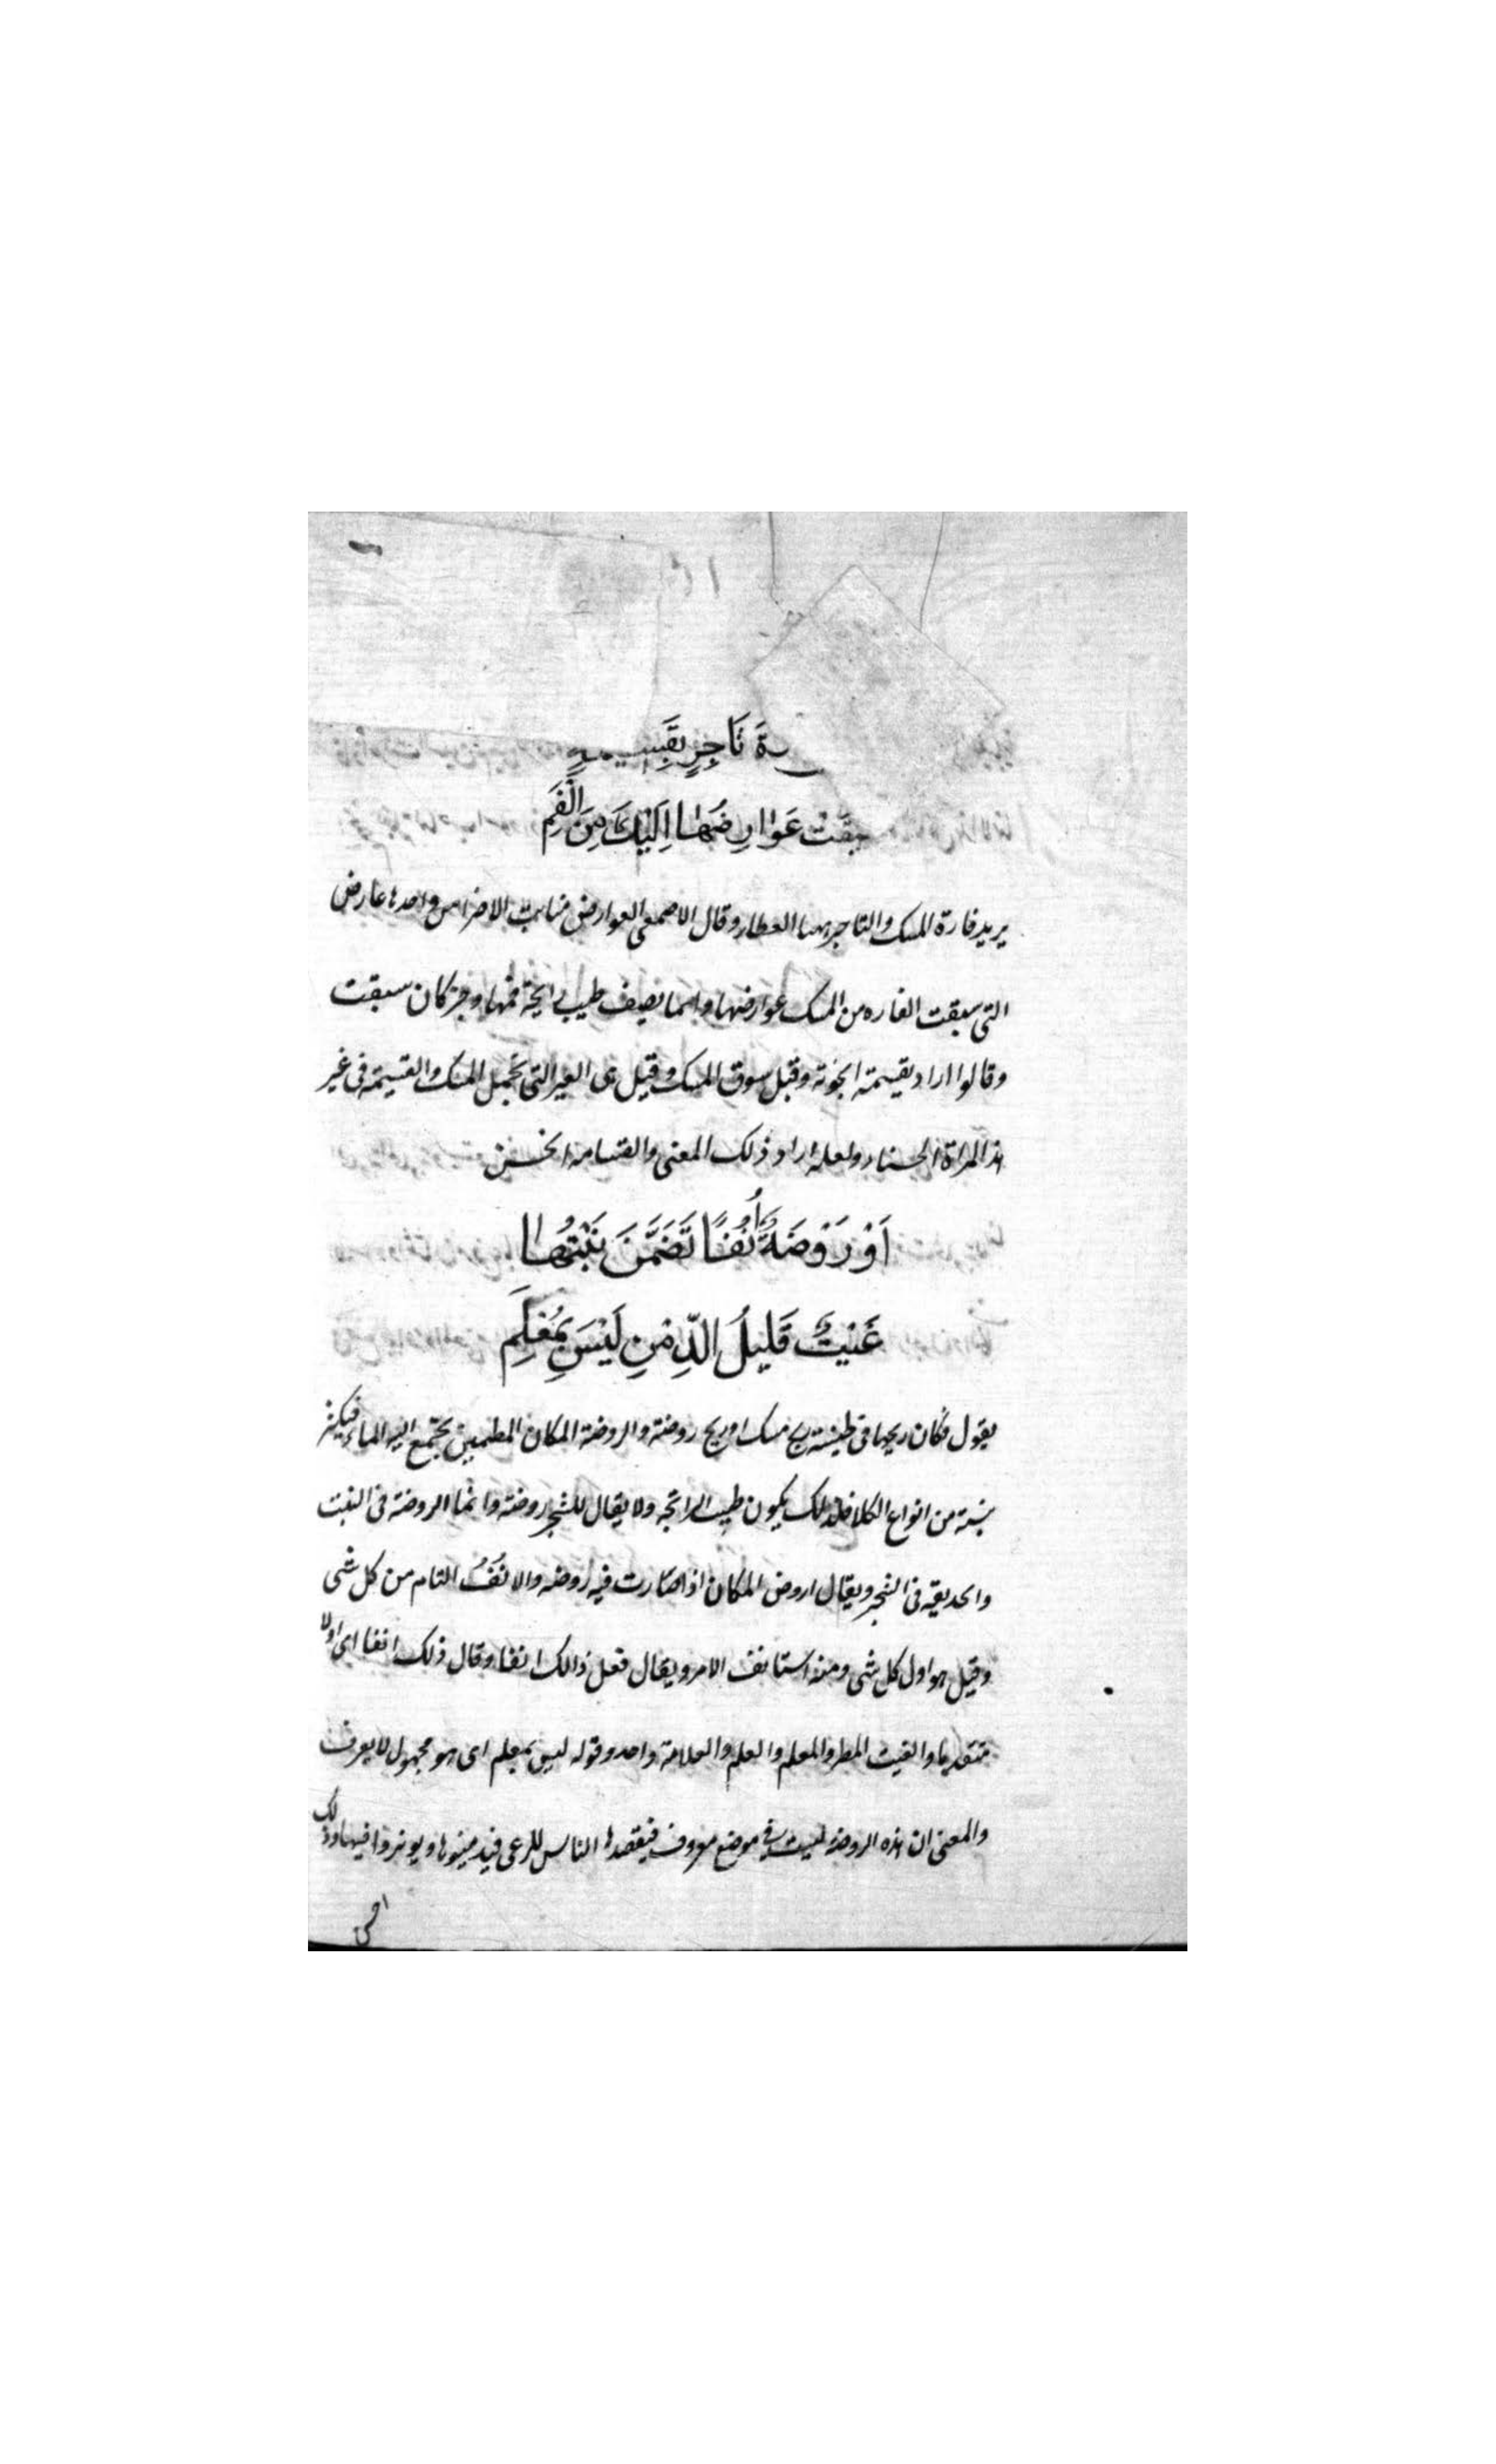 رَةَ تَاجِرٍ بِقَسِيمَةٍ
سبَقَتْ عَوَارِضُهَا اِلَيْكَ مِنَ الْفَمِ
يريد فارة المسك والتاجر ههنا العطار وقال الاصمعى العوارض منابت الاضراس واحدها عارض
التى سبقت الفاره من المسك عوارضها وانما يصف طيب رايحة فمها وخبر كان سبقت
وقالوا اراد بقسيمة الجونة وقيل سوق المسك وقيل هى العير التى تحمل المسك والقسيمة فى غير
هذا المراة الحسناء ولعله اراد ذلك المعنى والقسامة الحسن
اَوْ رَوْضَةً أُنُفًا تَضَمَّنَ نَبْتُهَا
غَيْثٌ قَلِيلُ الدِّمْنِ لَيْسَ بِمُعْلَمِ
يقول فكان ريحها فى طيبه ريح مسك او ريح روضة والروضة المكان المطمين يجتمع اليه الماء فيكثر
نبته من انواع الكلا فلذلك يكون طيب الرائحه ولا يقال للشجر روضة وانما الروضة فى النبت
والحديقه فى الشجر ويقال اروض المكان اذا صارت فيه روضه والانُفُ التام من كل شى
وقيل هو اول كل شى ومنه استانف الامر ويقال فعل ذالك انفا وقال ذلك انفا اى اولا
متقدما والغيث المطر والمعلم والعلم والعلامة واحد وقوله ليس بمعلم اى هو مجهول لا يعرف
والمعنى ان هذه الروضه ليست فى موضع معروف فيقصدها الناس للرعى فيدمنوها و يوثروا فيها وذلك